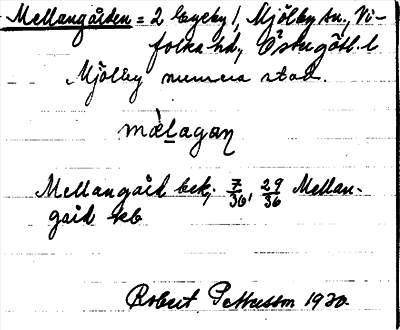 Mellangården = 2 Egeby 1, Mjölby sn., Vi-
folka hd, Östergötl. l
Mjölby numera stad.
mæ̀lagaɳ
Mellangård bek. 7/36, 29/36 Mellan-
gård kb
Robert Pettersson 1920.